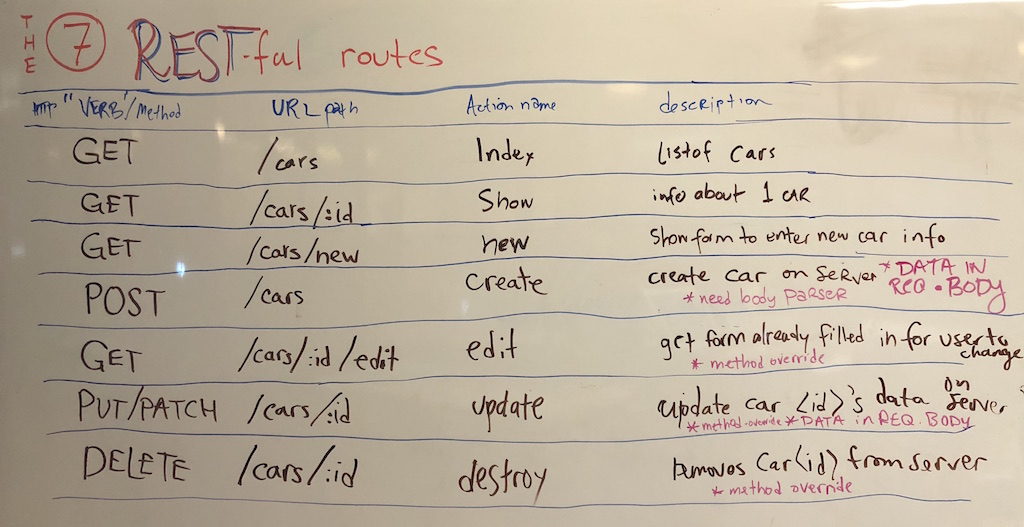 THE 7 REST-ful routes
HTTP "VERB"/Method URL path Action name description
GET /cars Index list of cars
GET /cars/:id Show info about 1 CAR
GET /cars/new new Show form to enter new car info
POST /cars create create car on server * DATA IN REQ.BODY
* need body parser
GET /cars/:id/edit edit get form already filled in for user to change
* method override
PUT/PATCH /cars/:id update update car <id>'s data on server
* method-override * DATA in REQ.BODY
DELETE /cars/:id destroy removes car <id> from server
* method override